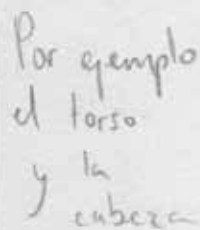 Por ejemplo
el torso
y la
cabeza